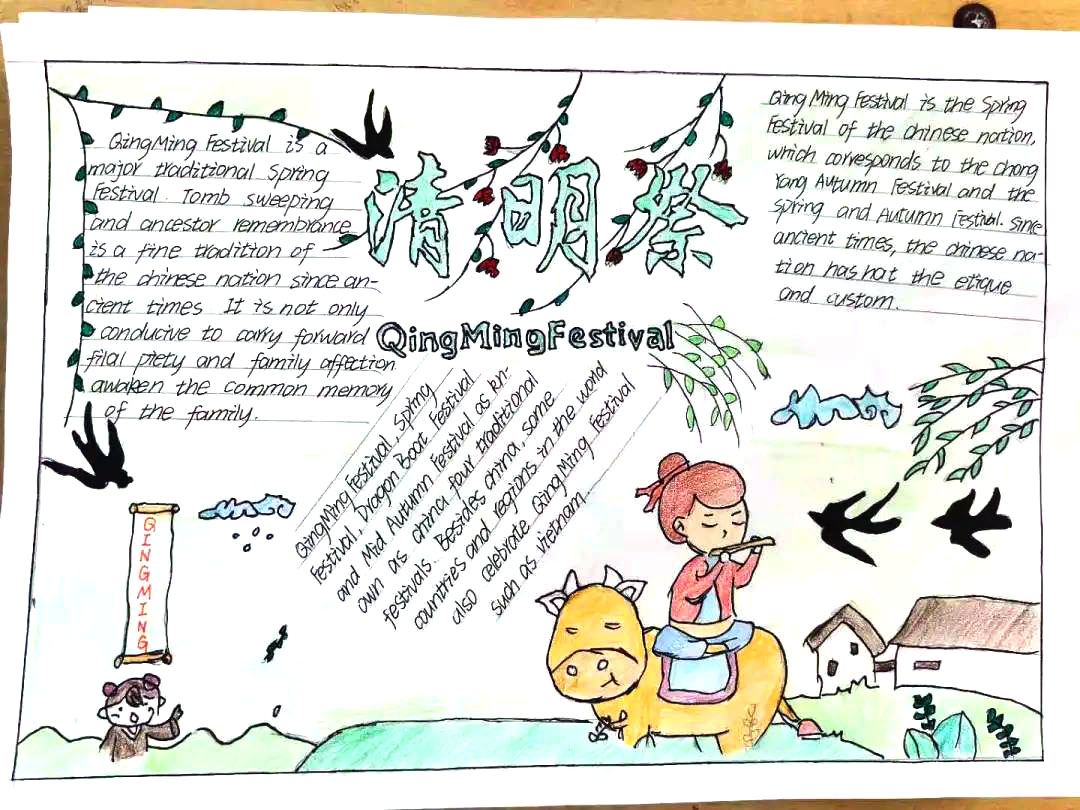 清明祭
QingMingFestival
QingMing Festival is a
major traditional spring
festival. Tomb sweeping
and ancestor remembrance
is a fine tradition of
the chinese nation since an-
cient times It is not only
conducive to carry forward
filal piety and family affection
awaken the common memory
of the family.
QingMing Festival is the Spring
Festival of the chinese nation,
which corresponds to the chong
Yang Autumn Festival and the
spring and Autumn Festival. since
ancient times, the chinese na-
tion has hat the etique
and custom.
QingMing Festival, Spring
festival, Dragon Boat Festival
and Mid Autumn Festival as kn-
own as china four traditional
festivals. Besides china, some
countries and regions in the world
also celebrate QingMing Festival
such as vietnam
QINGMING